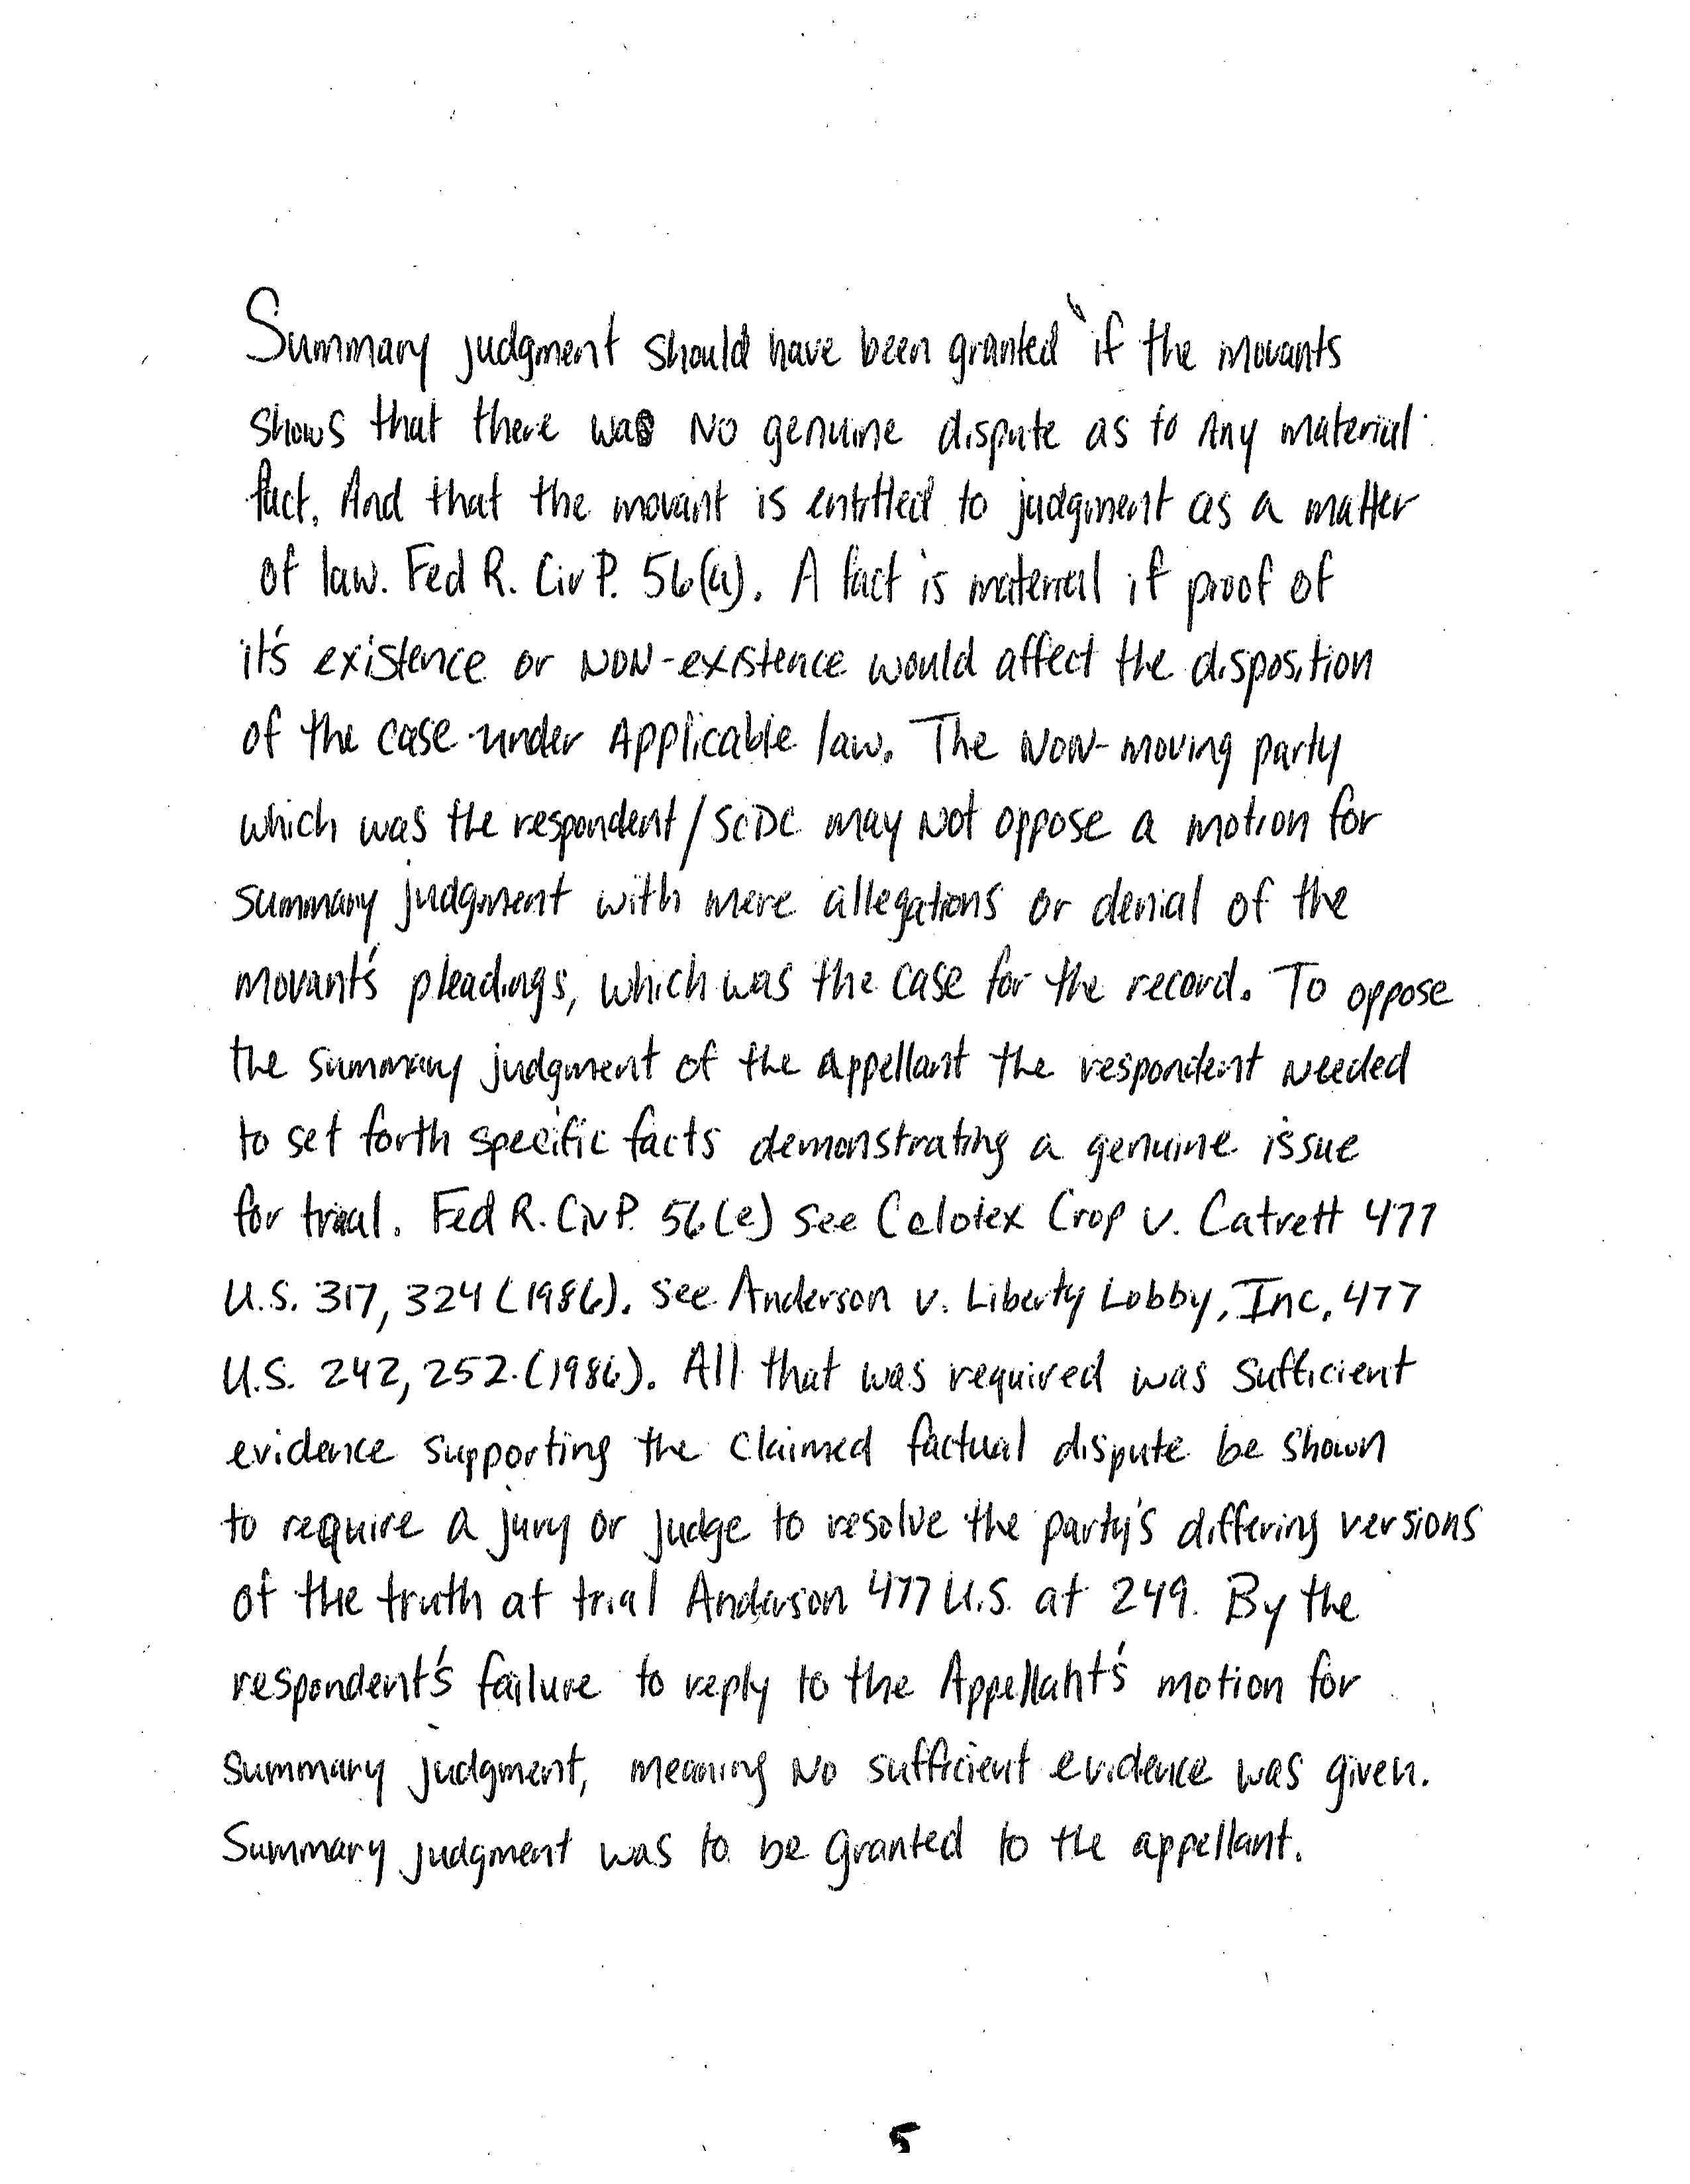 Summary judgment should have been granted "if the movants
shows that there was No genuine dispute as to Any material
fact. And that the movant is entitled to judgment as a matter
of law. Fed R. Civ P. 56(a). A fact is material if proof of
it's existence or NON-existence would affect the disposition
of the case under Applicable law. The NON-moving party
which was the respondent/SCDC may Not oppose a motion for
summary judgment with mere allegations or denial of the
movant's pleadings, which was the case for the record. To oppose
the summary judgment of the appellant the respondent Needed
to set forth specific facts demonstrating a genuine issue
for trial. Fed R. Civ P. 56(e) see Celotex Crop v. Catrett 477
U.S. 317, 324 (1986). see Anderson v. Liberty Lobby, Inc, 477
U.S. 242, 252. (1986). All that was required was sufficient
evidence supporting the claimed factual dispute be shown
to require a jury or judge to resolve the party's differing versions
of the truth at trial Anderson 477 U.S. at 249. By the
respondent's failure to reply to the Appellant's motion for
summary judgment, meaning No sufficient evidence was given.
Summary judgment was to be granted to the appellant.
5